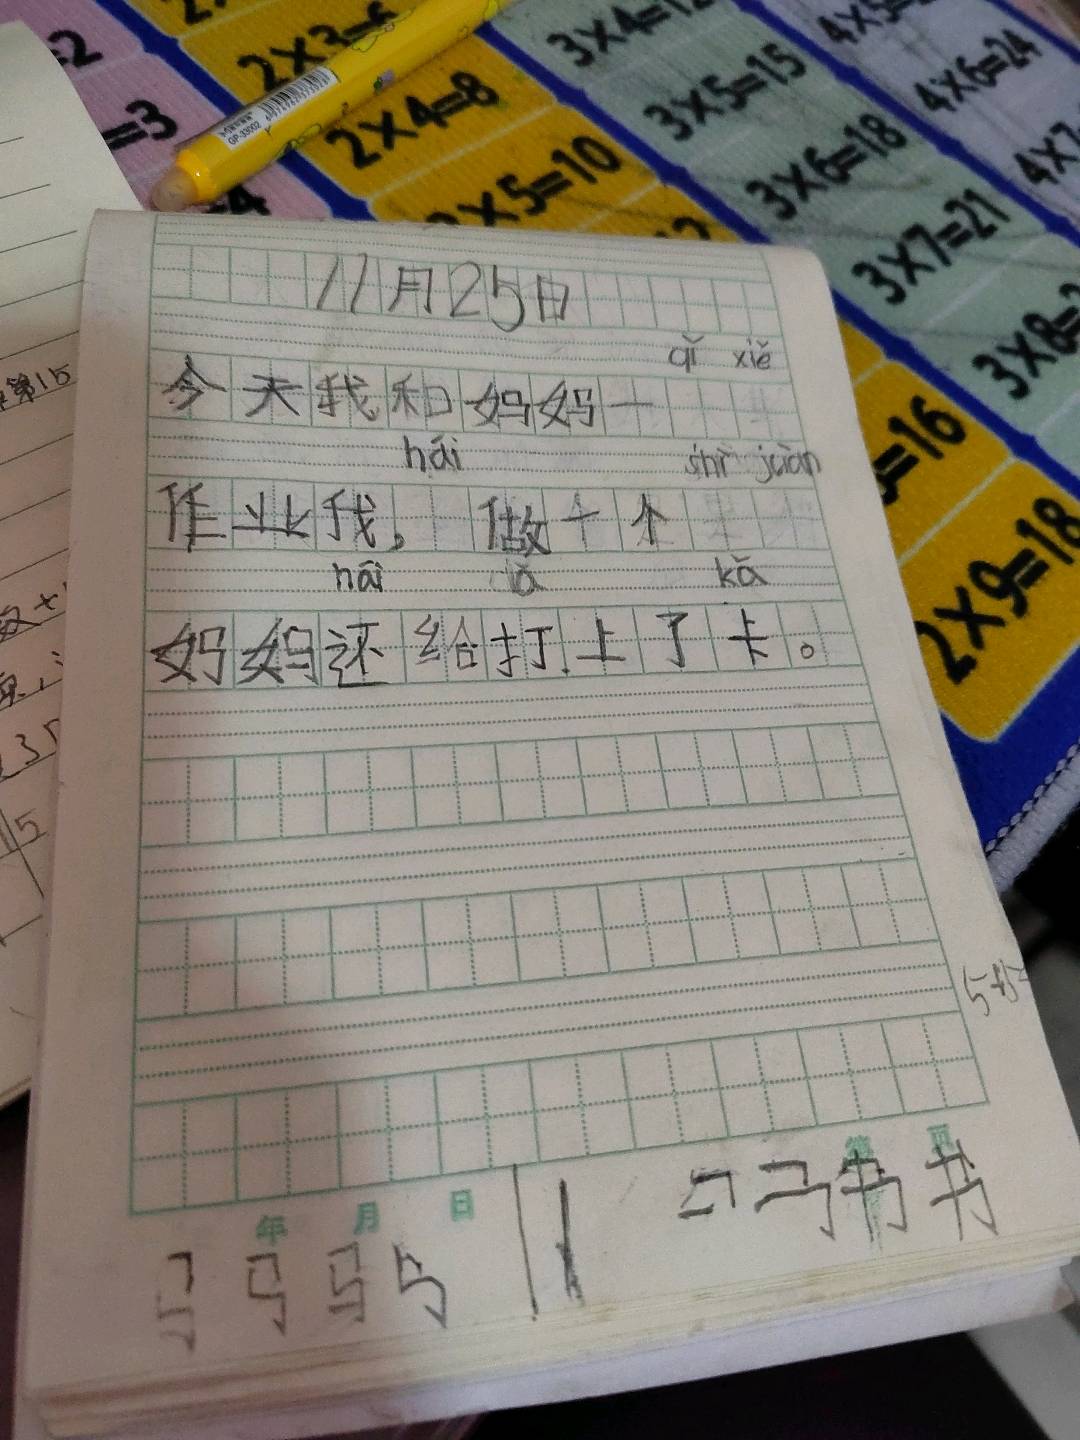 2×3=6
3×4=12
4×5=
=2
=3
2×4=8
3×5=15
4×6=24
×5=10
3×6=18
4×7
=4
12
3×7=21
3×8=2
=16
2×9=18
GP-33002
第15
11月25日
qǐ xiě
今天我和妈妈一
hái shì juàn
作业我，做十个
hāi dǎ kǎ
妈妈还给打上了卡。
年 月 日
第 页
书 书